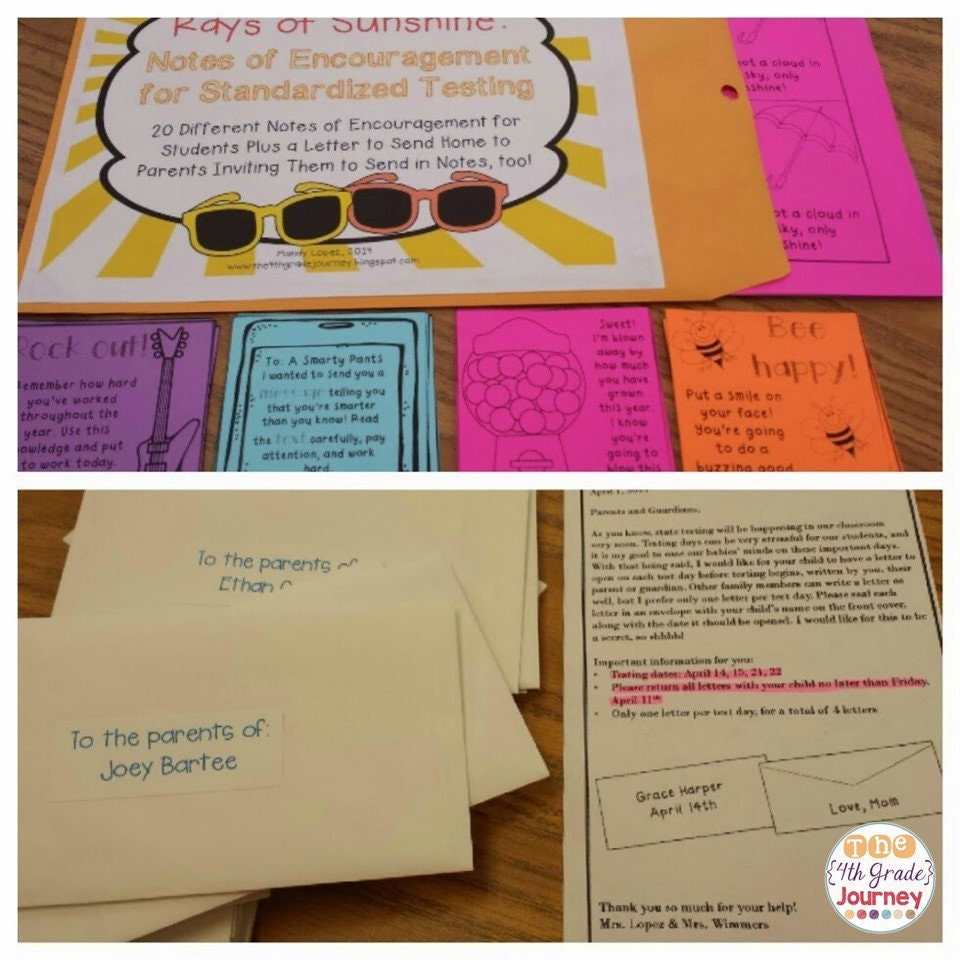 Rays of Sunshine:
Notes of Encouragement
for Standardized Testing
20 Different Notes of Encouragement for
Students Plus a Letter to Send Home to
Parents Inviting Them to Send in Notes, too!
Mandy Lopez, 2014
www.the4thgradejourney.blogspot.com
not a cloud in
sky, only
shine!
not a cloud in
sky, only
shine!
Rock out!
Remember how hard
you've worked
throughout the
year. Use this
knowledge and put
to work today.
To: A Smarty Pants
I wanted to send you a
message telling you
that you're smarter
than you know! Read
the text carefully, pay
attention, and work
hard.
Sweet!
I'm blown
away by
how much
you have
grown
this year.
I know
you're
going to
blow this
Bee
happy!
Put a smile on
your face!
You're going
to do a
buzzing good
To the parents of
Ethan
To the parents of:
Joey Bartee
April 1, 2014
Parents and Guardians,
As you know, state testing will be happening in our classroom
very soon. Testing days can be very stressful for our students, and
it is my goal to ease our babies' minds on these important days.
With that being said, I would like for your child to have a letter to
open on each test day before testing begins, written by you, their
parent or guardian. Other family members can write a letter as
well, but I prefer only one letter per test day. Please seal each
letter in an envelope with your child's name on the front cover,
along with the date it should be opened. I would like for this to be
a secret, so shhhh!
Important information for you:
• Testing dates: April 14, 15, 21, 22
• Please return all letters with your child no later than Friday,
April 11th
• Only one letter per test day, for a total of 4 letters
Grace Harper
April 14th
Love, Mom
Thank you so much for your help!
Mrs. Lopez & Mrs. Wimmers
The
{4th Grade}
Journey